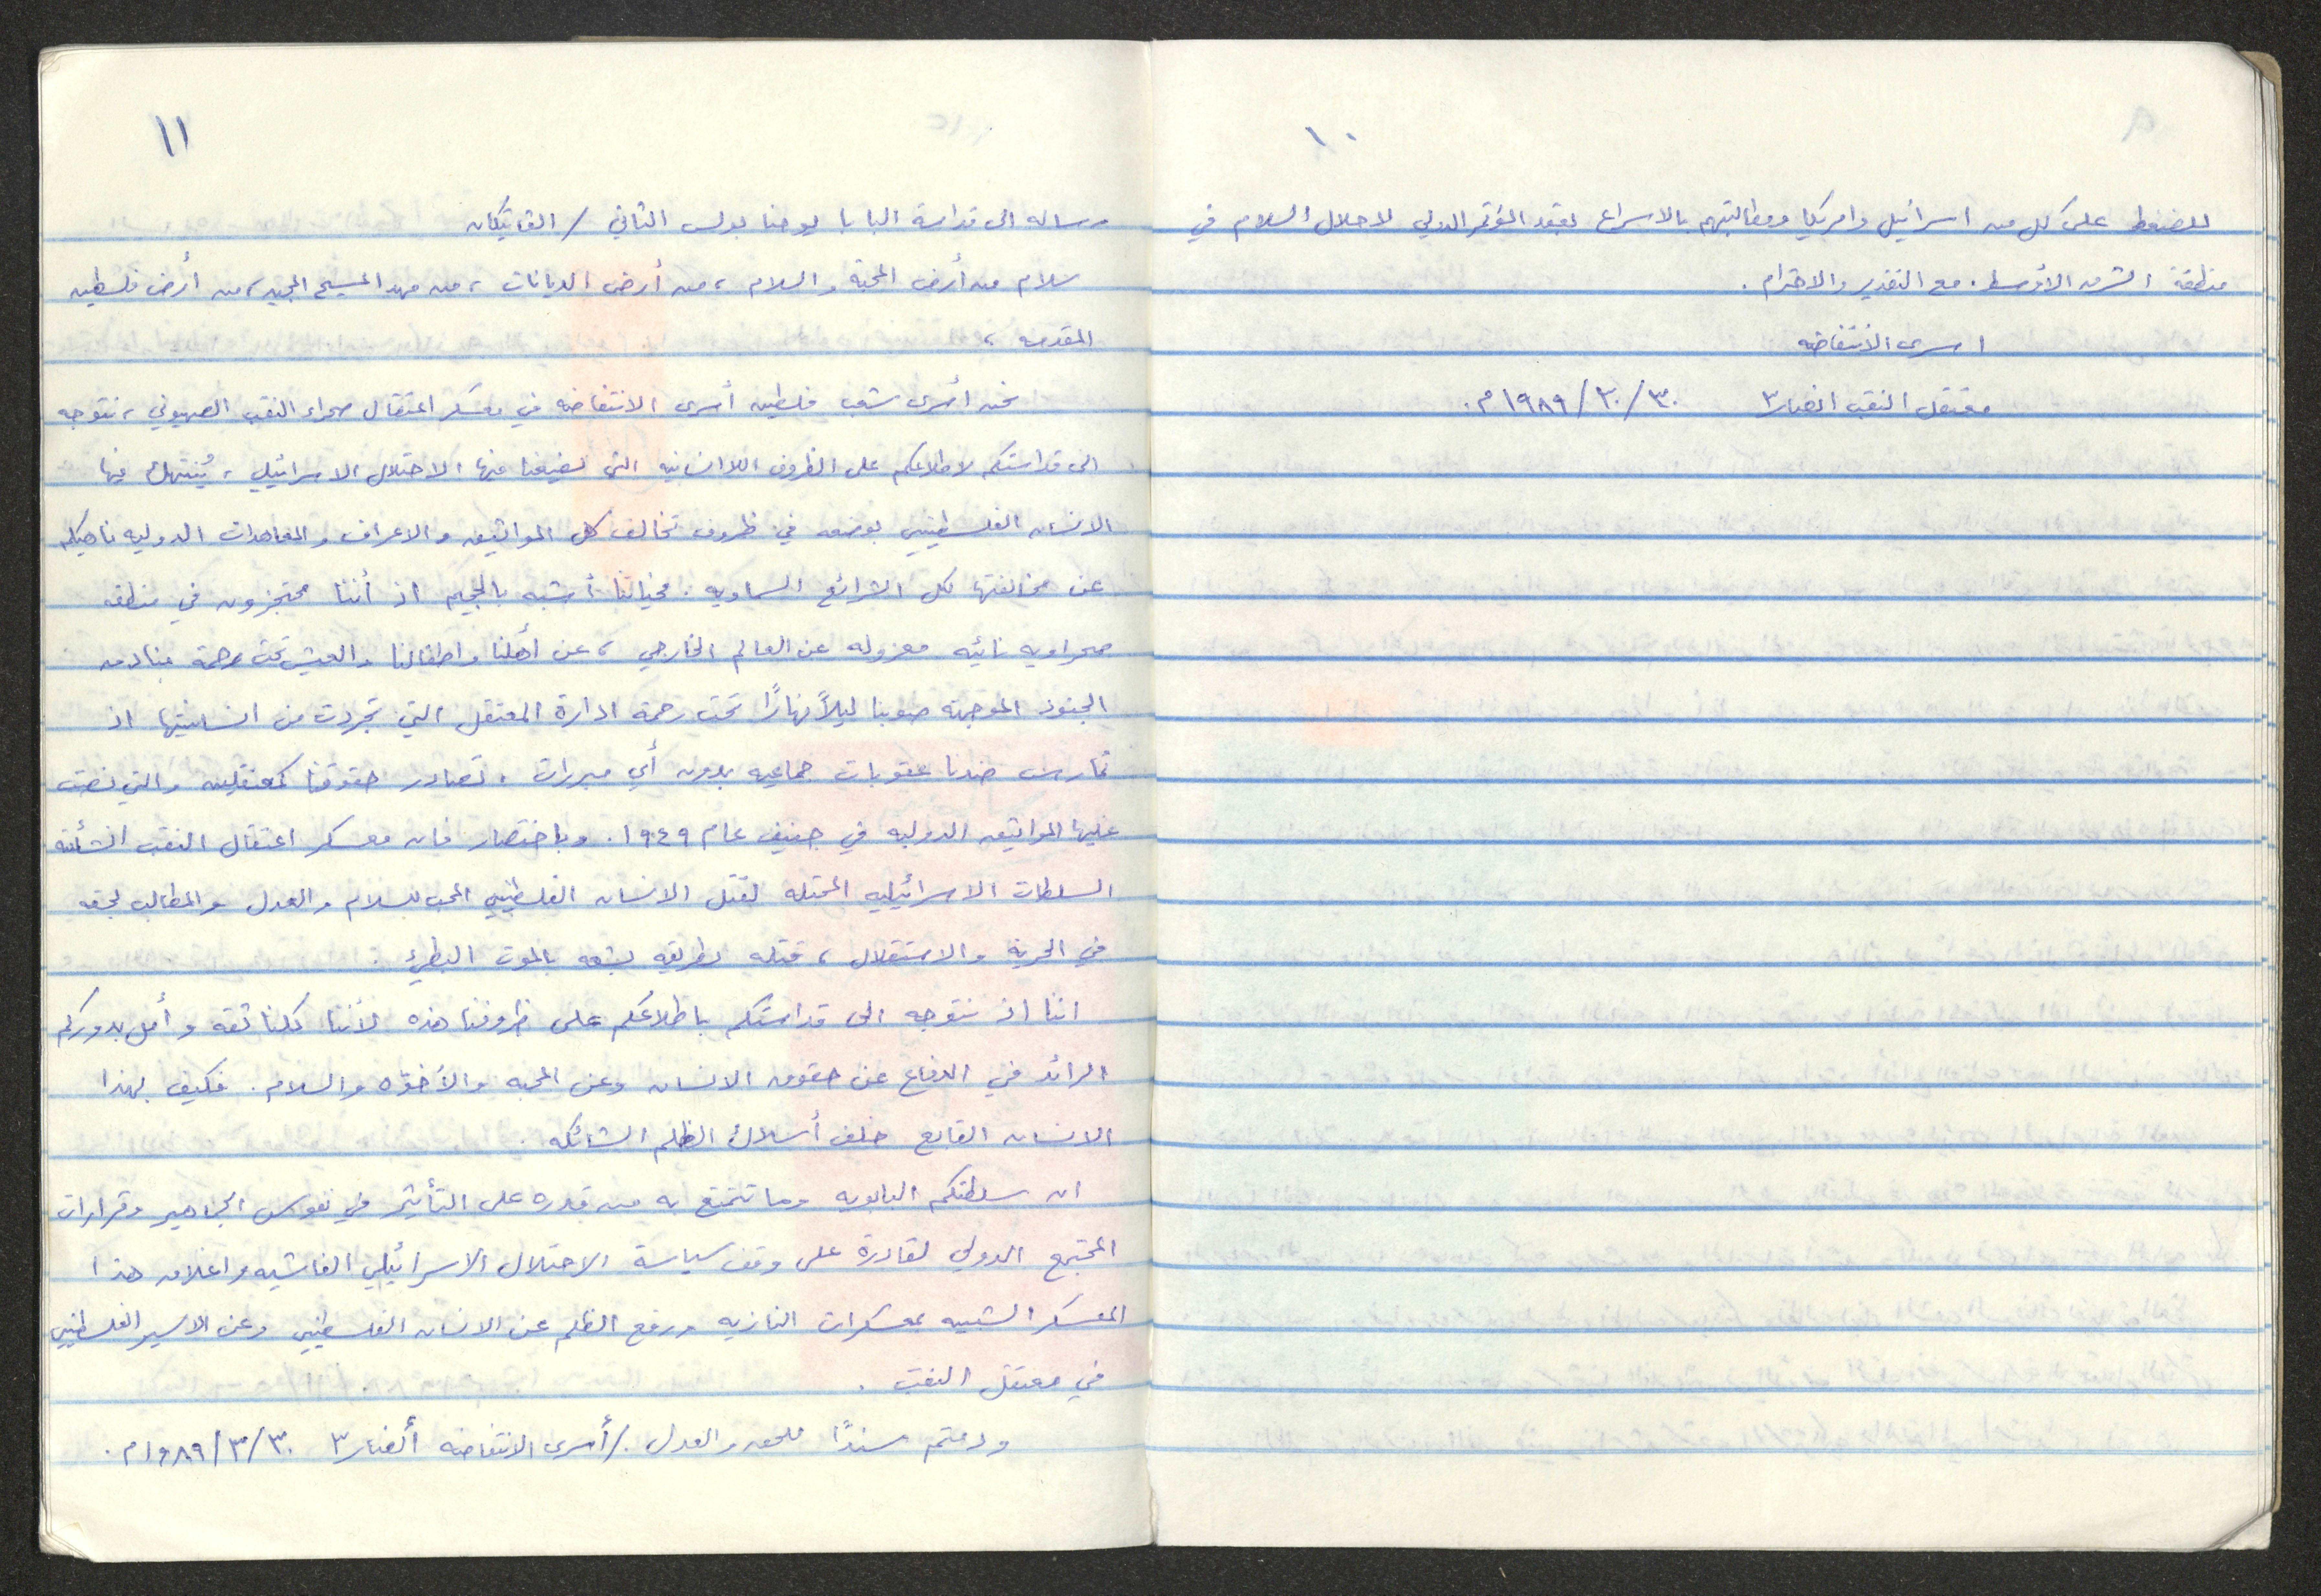 ١٠
للضغط على كل من اسرائيل وامريكا ومطالبتهم بالاسراع لعقد المؤتمر الدولي لاحلال السلام في
منطقة الشرق الأوسط. مع التقدير والاحترام.
اسرى الانتفاضه
معتقل النقب انصار٣ ٣٠/٣/١٩٨٩م.
١١
رساله الى قداسة البابا يوحنا بولس الثاني / الفاتيكان
سلام من أرض المحبة والسلام، من أرض الديانات، من مهد المسيح المجيد، من أرض فلسطين
المقدسه،
نحن أسرى شعب فلسطين أسرى الانتفاضه في معسكر اعتقال صحراء النقب الصهيوني، نتوجه
الى قداستكم لاطلاعكم على الظروف اللاانسانيه التي يضعنا فيها الاحتلال الاسرائيلي، يُنتهك فيها
الانسان الفلسطيني بوضعه في ظروف تخالف كل المواثيق والاعراف والمعاهدات الدوليه ناهيكم
عن مخالفتها لكل الشرائع السماويه. فحياتنا أشبه بالجحيم اذ أننا محتجزون في منطقه
صحراويه نائيه معزوله عن العالم الخارجي، عن أهلنا واطفالنا والعيش تحت رحمة بنادق
الجنود الموجهة صوبنا ليلاً نهارًا تحت رحمة ادارة المعتقل التي تجردت من انسانيتها اذ
تمارس ضدنا عقوبات جماعيه بدون أي مبررات، تصادر حقوقنا كمعتقلين والتي نصت
عليها المواثيق الدوليه في جنيف عام ١٩٤٩. وباختصار فان معسكر اعتقال النقب انشأته
السلطات الاسرائيليه المحتله لقتل الانسان الفلسطيني المحب للسلام والعدل والمطالب بحقه
في الحرية والاستقلال، قتله بطريقه بشعه بالموت البطيء.
اننا اذ نتوجه الى قداستكم باطلاعكم على ظروفنا هذه لأننا كلنا ثقه وأمل بدوركم
الرائد في الدفاع عن حقوق الانسان وعن المحبه والأخوّه والسلام. فكيف بهذا
الانسان القابع خلف أسلاك الظلم الشائكه.
ان سلطتكم البابويه وما تتمتع به من قدره على التأثير في نفوس الجماهير وقرارات
المجتمع الدولي لقادرة على وقف سياسة الاحتلال الاسرائيلي الفاشيه واغلاق هذا
المعسكر الشبيه بمعسكرات النازيه ورفع الظلم عن الانسان الفلسطيني وعن الاسير الفلسطيني
في معتقل النقب.
ودمتم سندًا للحق والعدل. / أسرى الانتفاضه أنصار٣ ٣٠/٣/١٩٨٩م.